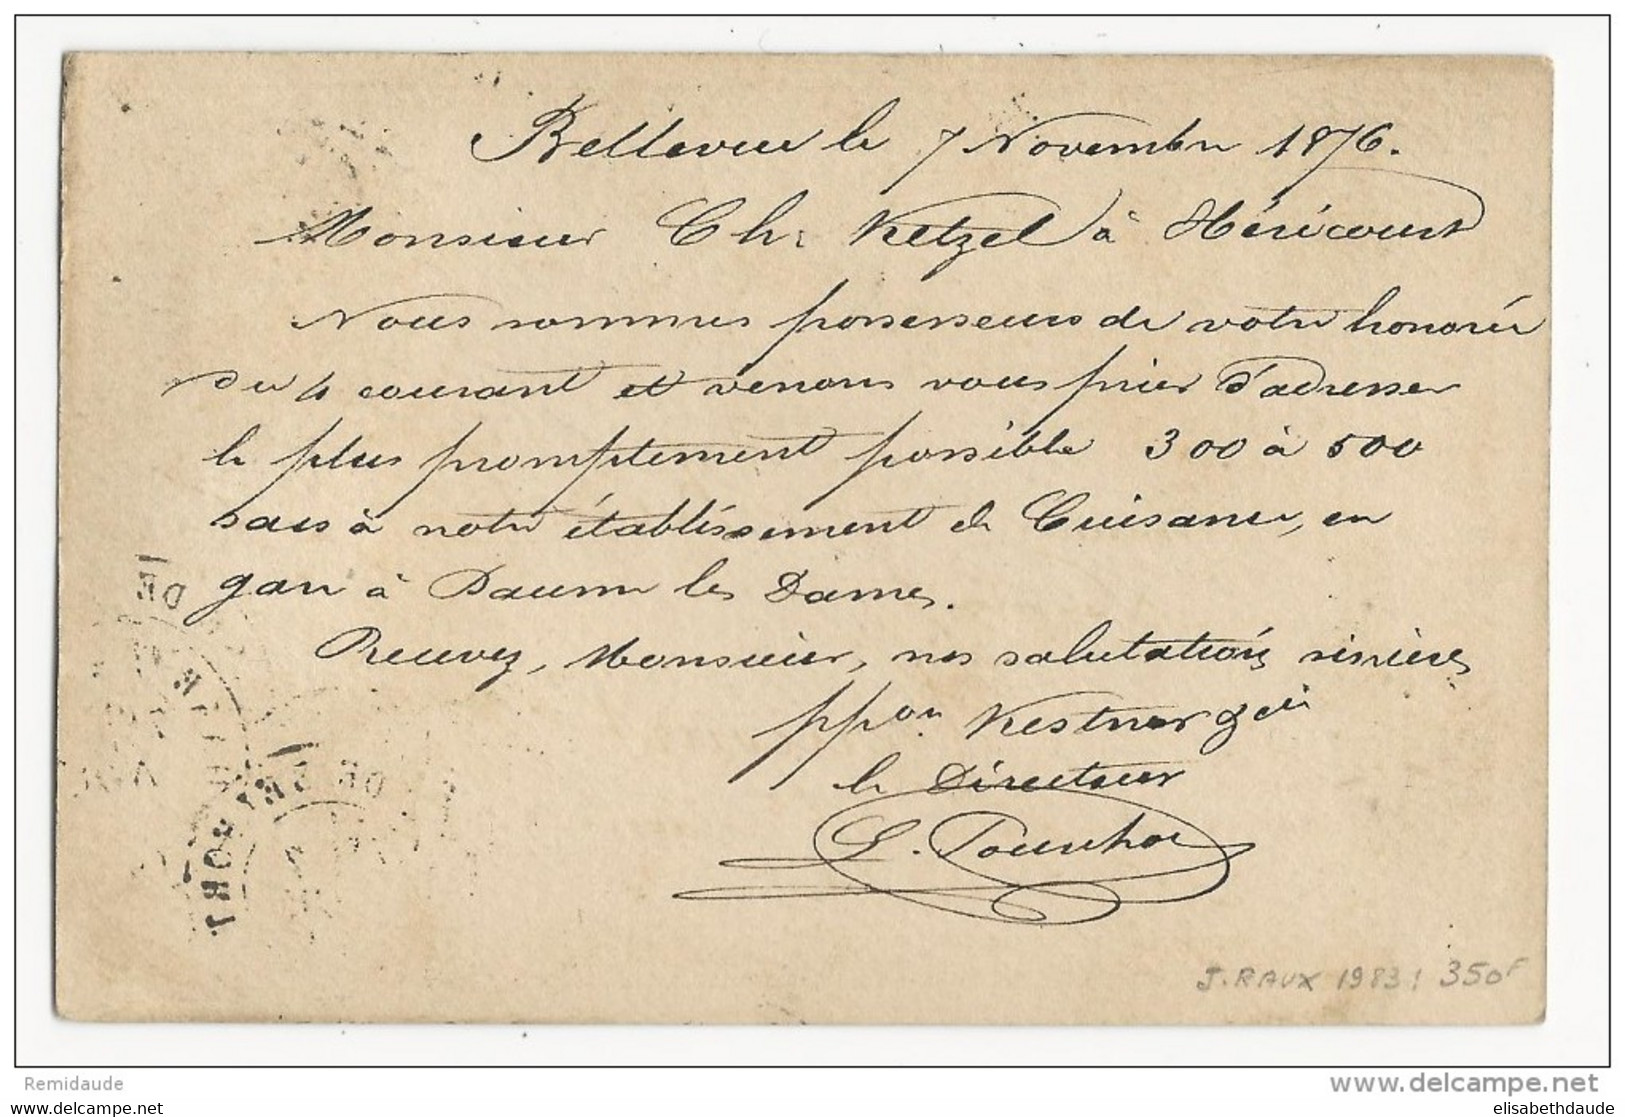 Bellevue le 7 Novembre 1876.
Monsieur Ch: Ketzel à Héricourt
Nous sommes possesseurs de votre honorée
du 4 courant et venons vous prier d'adresser
le plus promptement possible 300 à 500
sacs à notre établissement de Cuisance, en
gare à Baume les Dames.
Recevez, Monsieur, nos salutations sincères
ppon Kestner & Cie
le Directeur
DE
DE BELFORT
J. RAUX 1983: 350F
Remidaude
www.delcampe.net
https://www.delcampe.net
elisabethdaude